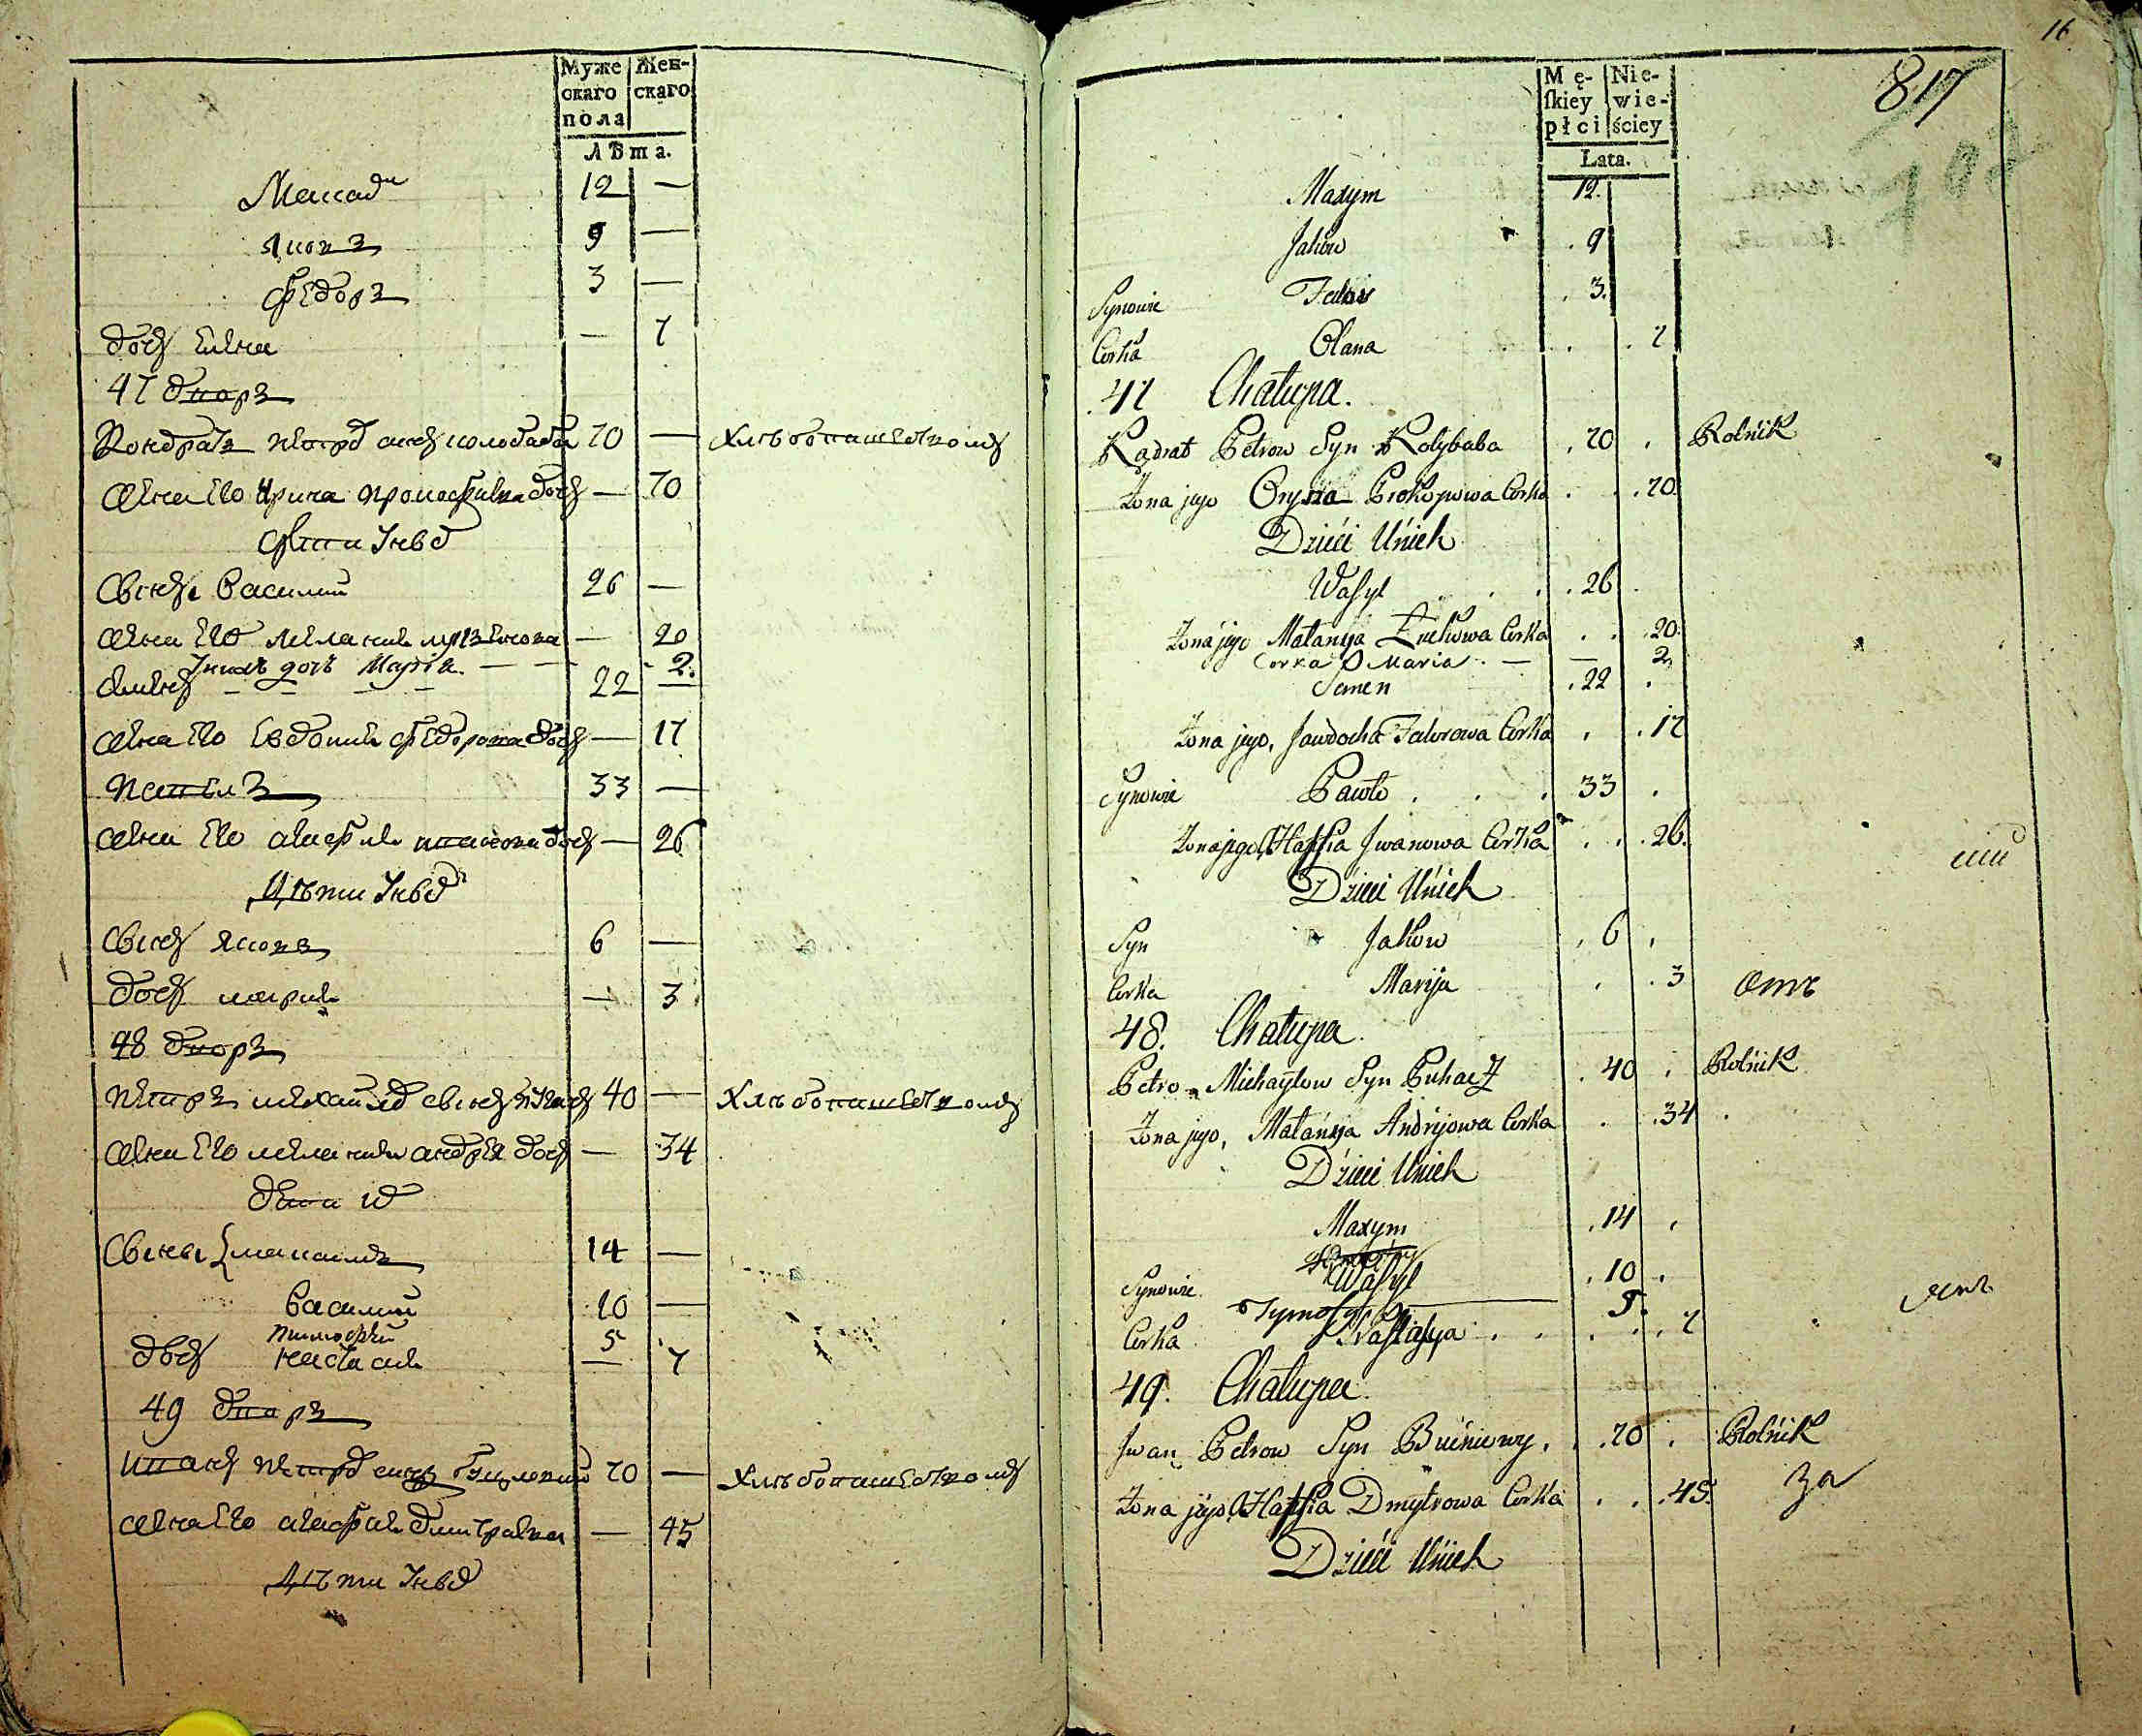 Муже Жен-
скаго скаго
пола
Лѣта.
Максимъ 12 —
Яковъ 9 —
Федоръ 3 —
дочь Елена — 7
47 дворъ
Кондратъ Петровъ сынъ Колобаба 70 — Хлѣбопашествомъ
жена его Ирина Прокофьева дочь — 70
Дѣти у нихъ
Сынъ Василий 26 —
жена его Мелания — 20
У нихъ дочь Марiя. — — 2.
Семенъ 22 —
жена его Евдокия Федорова дочь — 17
Павелъ 33 —
жена его Агафия Иванова дочь — 26
Дѣти у нихъ
Сынъ Яковъ 6 —
дочь Мария — 3
48 дворъ
Петръ Михайловъ сынъ Пугачъ 40 — Хлѣбопашествомъ
жена его Мелания Андрея дочь — 34
дети их
Сыны Максимъ 14 —
Василий 10 —
Тимофей 5
дочь Настасия — 7
49 дворъ
Иванъ Петровъ сынъ 70 — Хлѣбопашествомъ
жена его Агафия Дмитриева — 45
Дѣти у нихъ
16
817
Mę- Nie-
ſkiey wie-
płci ściey
Lata.
Maxym 12.
Jakow . 9
Synowie Fedor . 3.
Corka Olana . . 7
.47 Chałupa.
Kądrat Petrow Syn Kolybaba . 70 . Rolnik
Żona jego Oryna Prokopowa Corka . . .70.
Dzieci Unich
Wasyl . . . 26 .
Żona jego Małanija Corka . . .20.
Corka Maria . — — 2
Semen . 22 .
Żona jego, Jawdocha Fedorowa Corka . . 17
Synowie Pawło . . . 33 .
Żona jego, Hapſia Jwanowa Corka . . . 26.
Dzieci Unich
Syn Jakow . 6 .
Corka Marija . . 3
48. Chałupa.
Petro Michayłow Syn Puhacz . 40 . Rolnik
Żona jego, Małanija Andrijowa Corka . . 34
Dzieci Unich
Maxym . 14 .
Synowie Wasyl . 10 .
Tymofy 5.
Corka Nastasya . . . . . 7
49. Chałupa.
Jwan Petrow Syn . . 70 . Rolnik
Żona jego, Hapſia Dmytrowa Corka . . . 45. за
Dzieci Unich